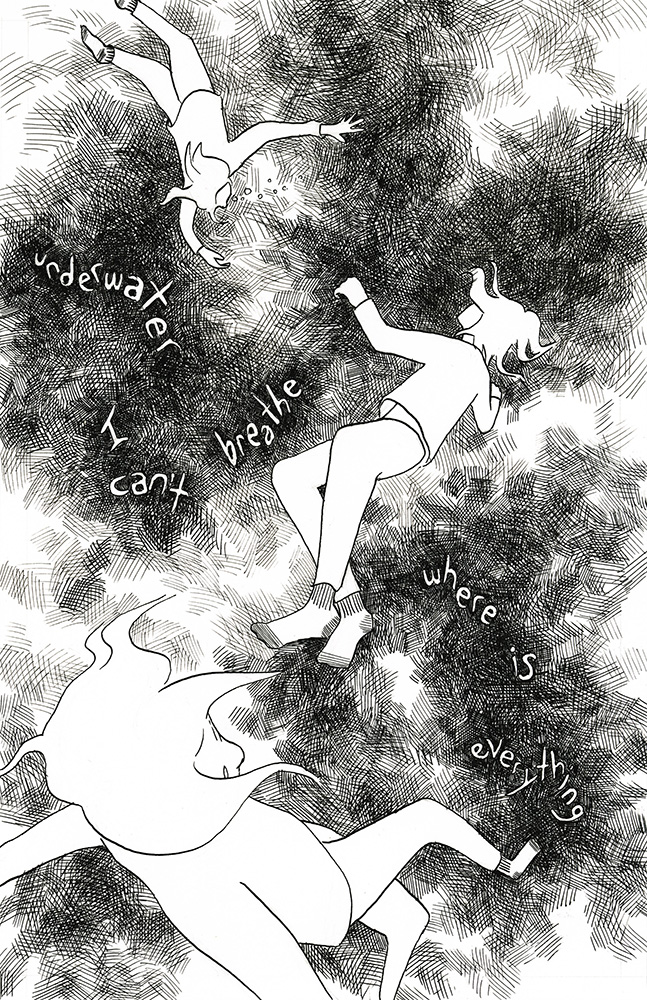 underwater
I
can't
breathe
where is
everything